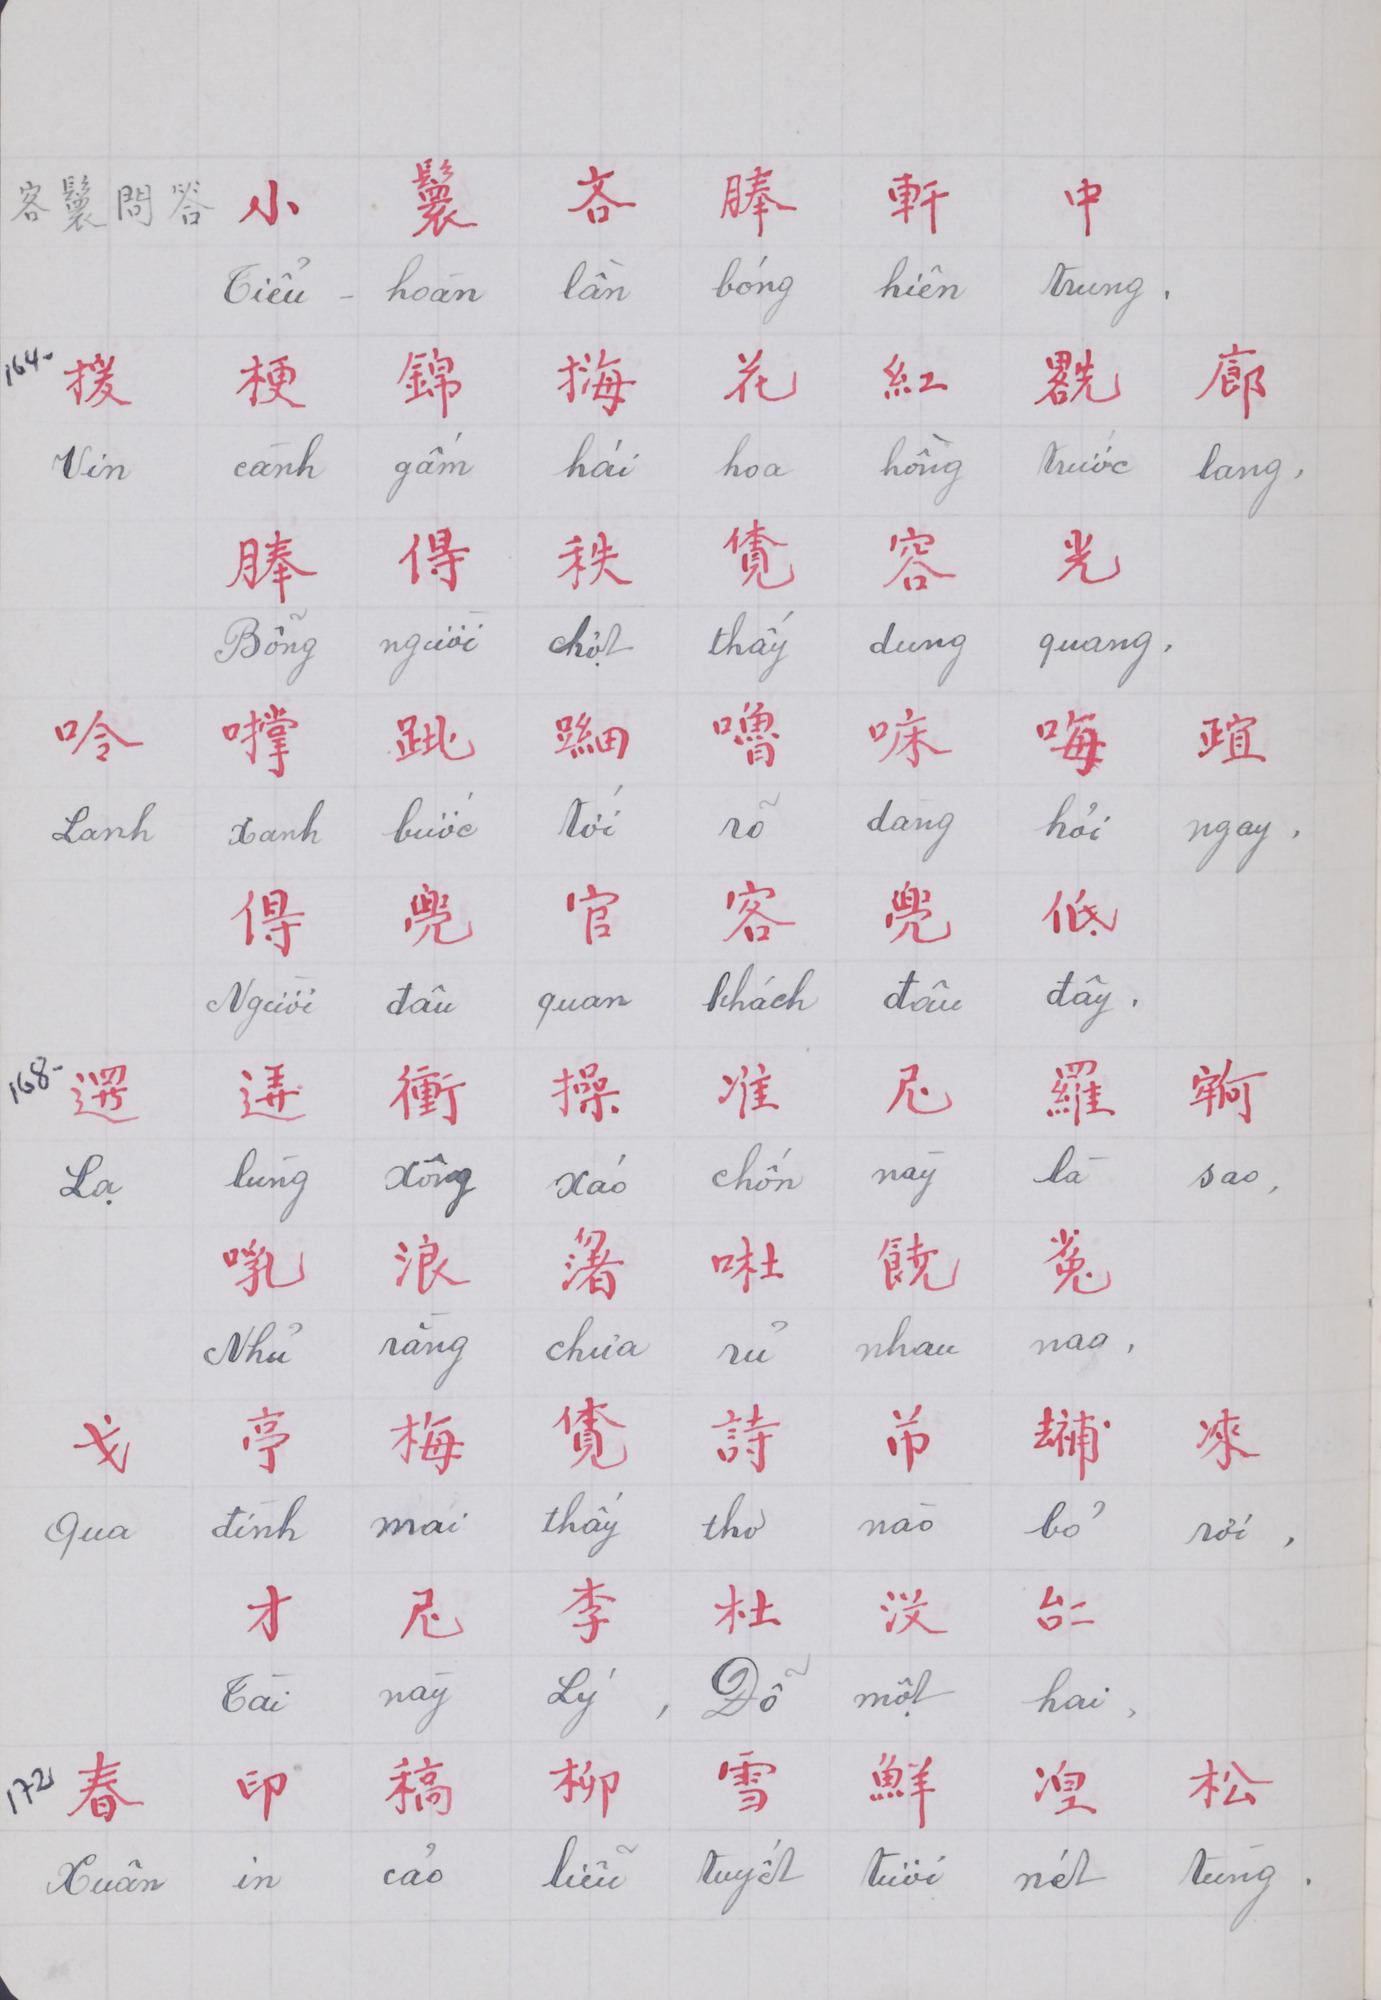 客鬟問答 小鬟吝𦝄軒中
Tiểu - hoàn lần bóng hiên trung,
164- 撜梗錦𢲨花紅𠠩廊
Vin cành gấm hái hoa hồng trước lang,
𦝄得秩覓容光
Bỗng người chợt thấy dung quang,
吟撑𨀈細嚕𠻀𠳨𣦍
Lanh xanh bước tới rõ dàng hỏi ngay,
得兜官客兜低
Người đâu quan khách đâu đây,
168- 逻𨔍衝操准尼羅𡫡
Lạ lùng xông xáo chốn này là sao,
乳浪渚饒
Nhủ rằng chưa rủ nhau nao,
戈亭梅覓詩芇補淶
Qua đình mai thấy thơ nào bỏ rơi,
才尼李杜没𠄩
Tài này Lý, Đỗ một hai,
172 春印稿柳雪鮮涅松
Xuân in cảo liễu tuyết tươi nét tùng.